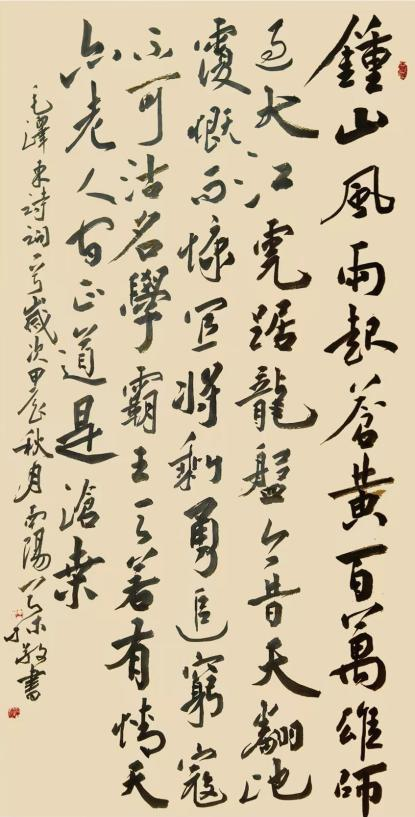 鍾山風雨起蒼黃百萬雄師
過大江虎踞龍盤今昔天翻地
覆慨而慷宜將剩勇追窮寇
不可沽名學霸王天若有情天
亦老人間正道是滄桑
毛澤東詩詞一首歲次甲辰秋月南陽敬書